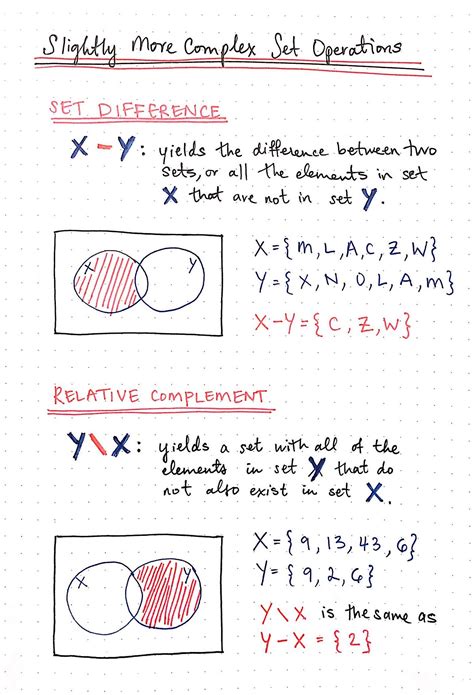 Slightly More Complex Set Operations
SET DIFFERENCE
X - Y: yields the difference between two
sets, or all the elements in set
X that are not in set Y.
X Y
X = {M, L, A, C, Z, W}
Y = {X, N, O, L, A, M}
X-Y = {C, Z, W}
RELATIVE COMPLEMENT
Y\X: yields a set with all of the
elements in set Y that do
not also exist in set X.
X Y
X = {9, 13, 43, 6}
Y = {9, 2, 6}
Y\X is the same as
Y-X = {2}